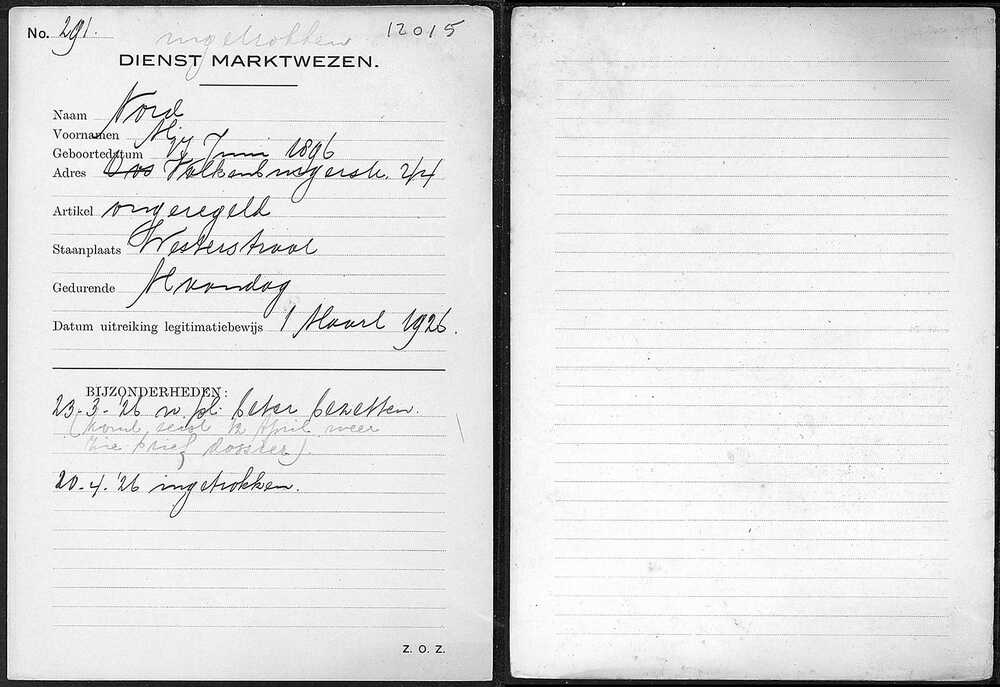 No. 291.
ingetrokken
12015
DIENST MARKTWEZEN.
Naam Nord
Voornamen
Geboortedatum Juni 1896
Adres Valkenburgerstr. 244
Artikel ongeregeld
Staanplaats Westerstraat
Gedurende Maandag
Datum uitreiking legitimatiebewijs 1 Maart 1926.
BIJZONDERHEDEN:
23-3-'26 w. pl. beter bezetten.
(komt eerst 12 April weer
zie brief dossier).
20-4-'26 ingetrokken.
Z. O. Z.